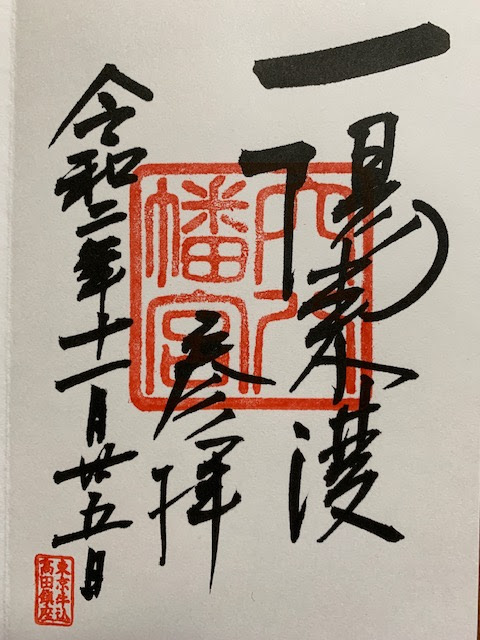 一陽來復
穴八
幡宮
参拝
令和二年十一月廿五日
東京牛込
高田鎮座